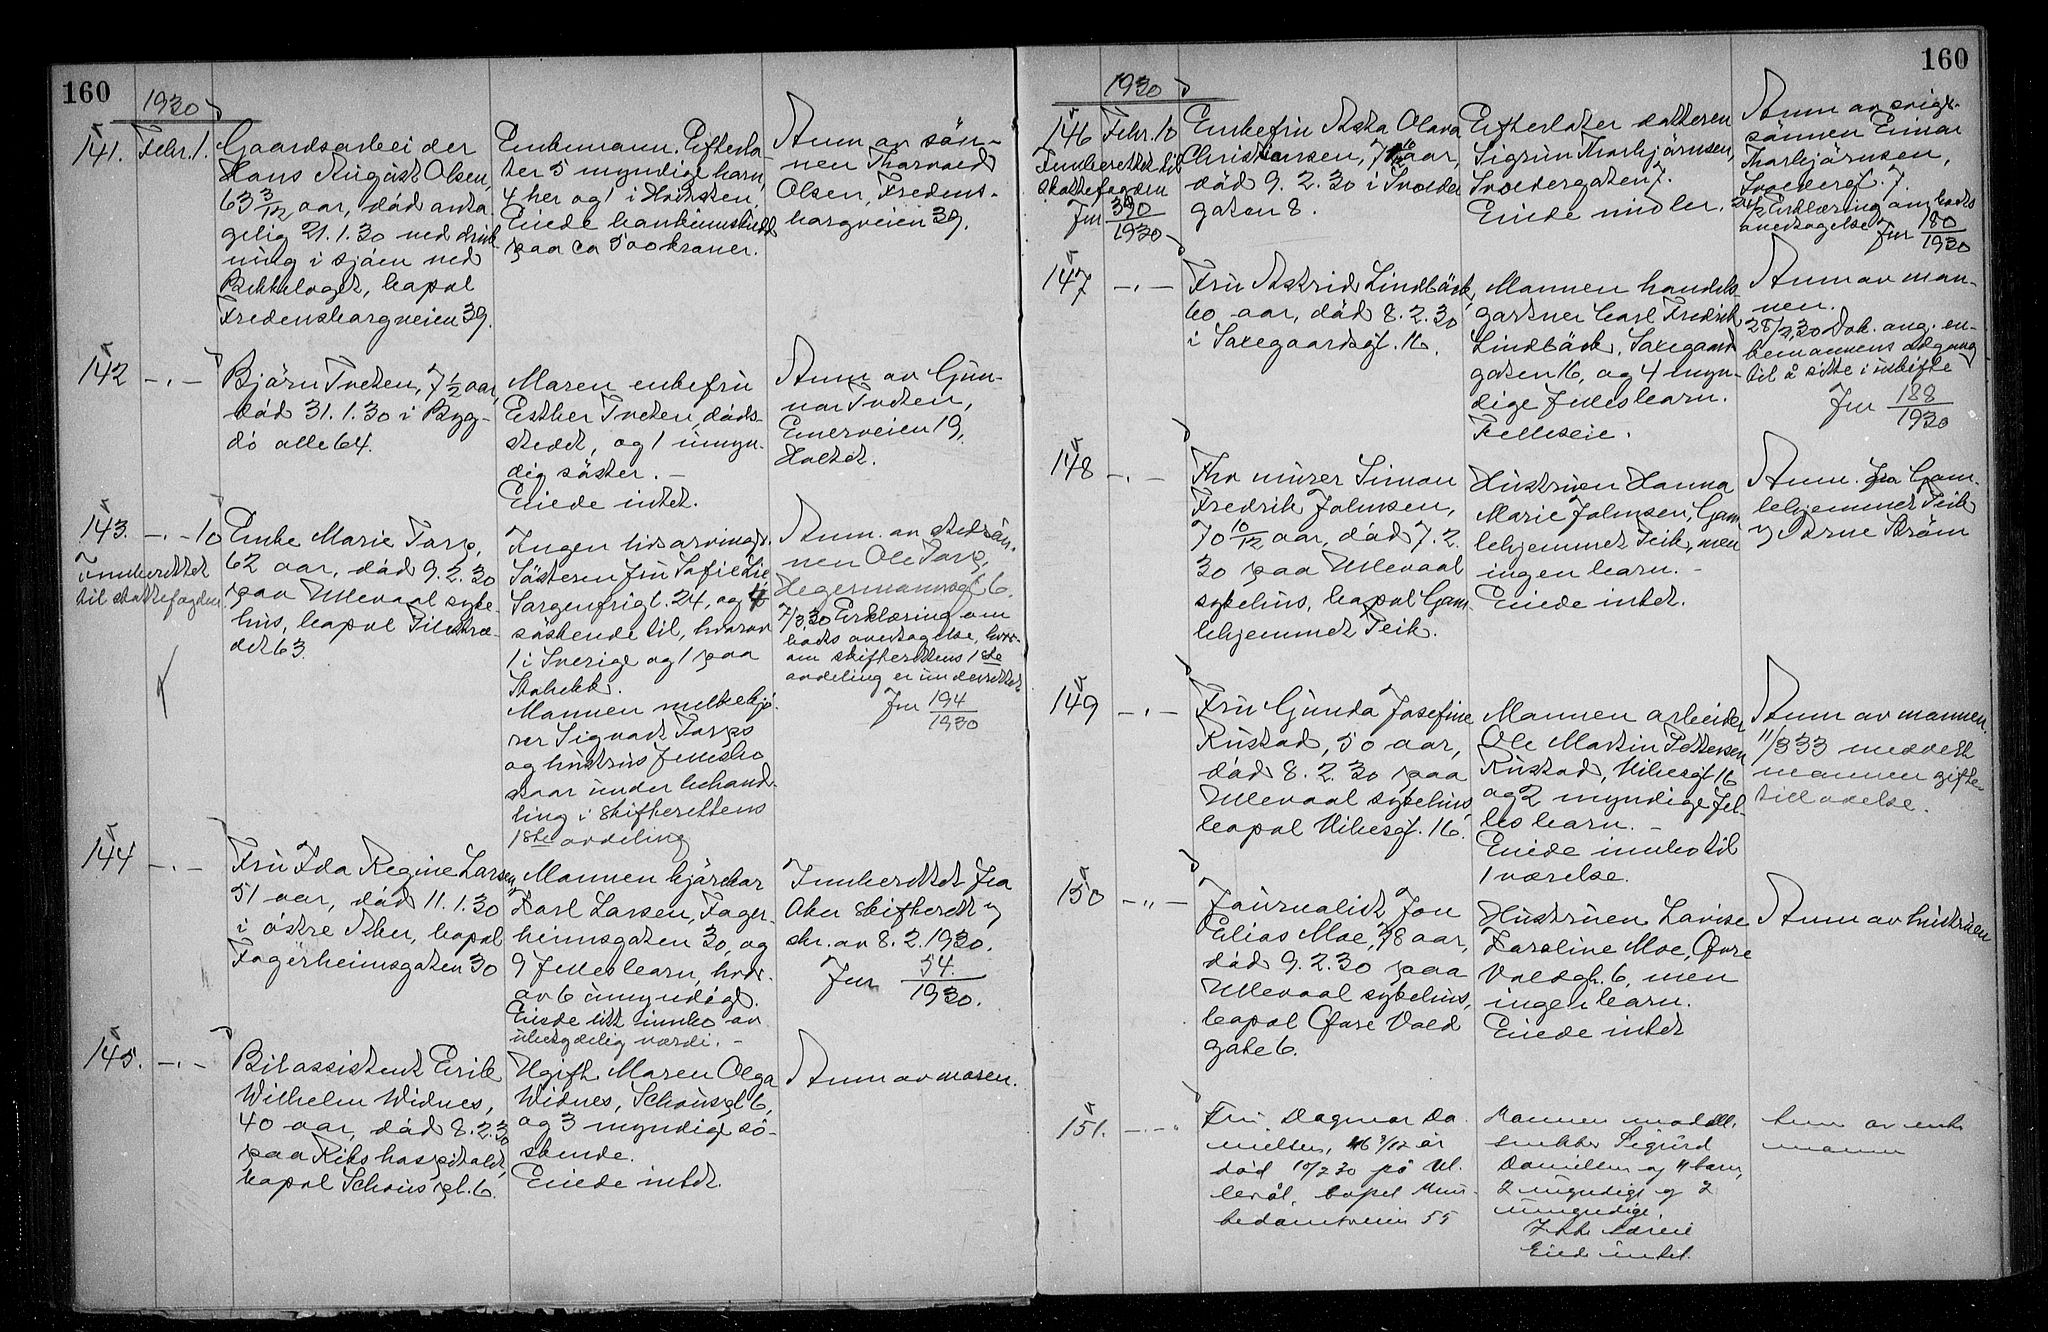 160
1930
141.
Febr. 1.
Gaardsarbeider
Hans August Olsen,
63 3/12 aar, död anta
gelig 21.1.30 ved druk
ning i sjöen ved
Bekkelaget, bopæl
Fredensborgveien 39.
Enkemann. Efterla-
ter 5 myndige barn,
4 her og 1 i Horsten.
Eiede bankinnskudd
paa ca 500 kroner.
Anm av sön-
nen Thorvald
Olsen, Fredens-
borgveien 39.
142
-.-
Björn Tveten, 7 1/2 aar,
död 31.1.30 i Byg-
dö alle 64.
Moren enkefru
Esther Tveten, döds-
stedet, og 1 umyn-
dig söster. -
Eiede intet.
Anm av Gun-
nar Tveten,
Enerveien 19,
Holtet.
143.
-.- 10
Innberettet
til skattefogden
Enke Marie Torp,
62 aar, död 9.2.30
paa Ullevaal syke-
hus, bopæl Pilestræ-
det 63.
Ingen livsarvinger.
Sösteren fru Sofie Lie
Sorgenfrigt. 24, og 4
söskende til, hvorav
1 i Sverige og 1 paa
Stabekk.
Mannen melkekjö-
rer Sigvart Torps
og hustrus fellesbo
staar under behand-
ling i skifterettens
1ste avdeling
Anm. av stedsön-
nen Ole Torp,
Hegermannsgt 6.
7/3.30 Erklæring om
boets overtagelse, hvor-
om skifterettens 1ste
avdeling er underrettet
Jnr 194/1930
144
-.-
Fru Ida Regine Larsen,
51 aar, död 11.1.30
i östre Aker, bopæl
Fagerheimsgaten 30
Mannen kjörekar
Karl Larsen, Fager-
heimsgaten 30, og
9 fellesbarn, hvor-
av 6 umyndige.
Eiede litt innbo av
ubetydelig værdi. -
Innberettet fra
Aker skifterett i
skr. av 8.2.1930.
Jnr 54/1930.
145.
-.-
Bilassistent Erik
Wilhelm Widnes,
40 aar, död 8.2.30
paa Rikshospitalet,
bopæl Schousgt. 6.
Ugift. Moren Olga
Widnes, Schousgt 6,
og 3 myndige sö-
skende.
Eiede intet.
Anm av moren.
160
1930
146
Febr. 10
Innberettet til
skattefogden
Jnr 390/1930
Enkefru Asta Olava
Christiansen, aar,
död 9.2.30 i Svolder
gaten 8.
Efterlater datteren
Sigrun Thorbjörnsen,
Svoldergaten 7.
Eiede midler.
Anm av sviger-
sönnen Einar
Thorbjörnsen,
Svoldergt. 7.
Erklæring om boets
overtagelse Jnr 180/1930
147
-.-
Fru Astrid Lindbäck,
60 aar, död 8.2.30
i Saxegaardsgt. 16.
Mannen handels-
gartner Carl Fredrik
Lindbäck, Saxegaard
gaten 16, og 4 myn-
dige fellesbarn.
Felleseie.
Anm av man-
nen.
28/2.30 Dok. ang. en-
kemannens adgang
til å sitte i uskifte
Jnr 188/1930
148
-.-
Fhv murer Simon
Fredrik Johnsen,
70 10/12 aar, död 7.2.
30 paa Ullevaal
sykehus, bopæl Gam
lehjemmet Teik.
Hustruen Hanna
Marie Johnsen, Gam
lehjemmet Teik, men
ingen barn. -
Eiede intet.
Anm. fra Gam-
lehjemmet Teik
v Arne Ström
149
-.-
Fru Gunda Josefine
Rustad, 50 aar,
död 8.2.30 paa
Ullevaal sykehus,
bopæl Vibesgt. 16.
Mannen arbeider
Ole Martin Pettersen
Rustad, Vibesgt 16
og 2 myndige fel-
lesbarn. -
Eiede innbo til
1 værelse.
Anm av mannen.
11/3 33 meddelt
mannen gifte-
tillatelse.
150
-"-
Journalist Jon
Elias Moe, 78 aar,
död 9.2.30 paa
Ullevaal sykehus,
bopæl Övre Vold
gate 6.
Hustruen Lovise
Karoline Moe, Övre
Voldgt. 6, men
ingen barn.
Eiede intet
Anm av hustruen
151.
-.-
Fru Dagmar Da
nielsen, 46 9/12 år
död 10/2 30 på Ul-
levål, bopel Mun-
kedamsveien 55
Mannen modell-
snekker Sigurd
Danielsen og 4 barn,
2 myndige og 2
umyndige.
Ikke særeie
Eied intet.
Anm av enke
mann